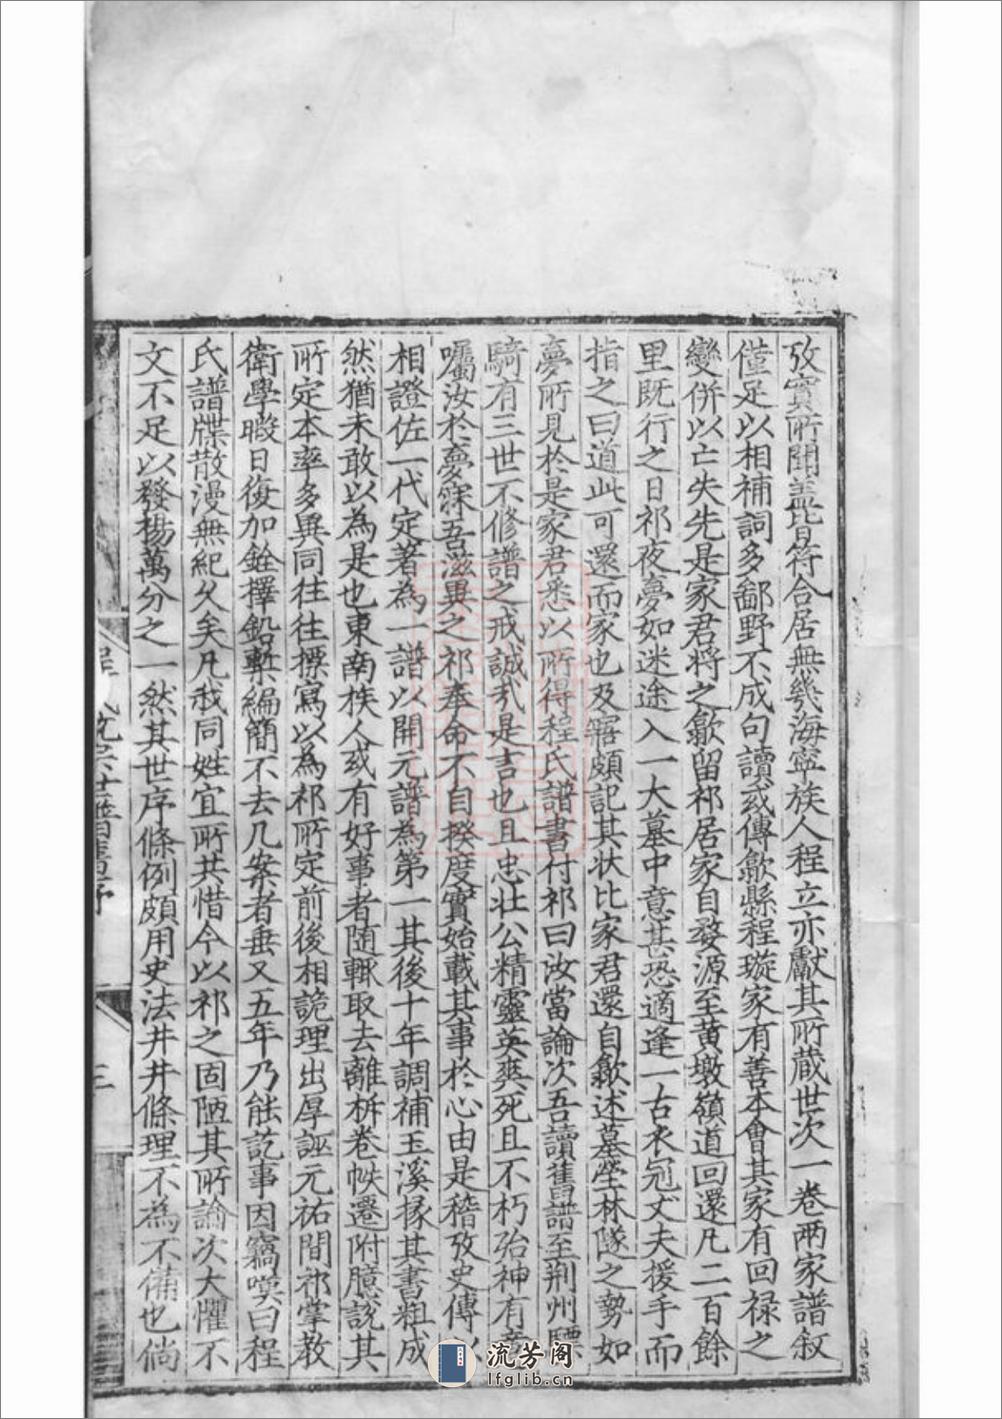 攷實所聞蓋皆符合居無幾海寧族人程立亦獻其所藏世次一卷兩家譜叙
僅足以相補詞多鄙野不成句讀或傳歙縣程璇家有善本會其家有回禄之
變併以亡失先是家君將之歙留祁居家自婺源至黄墩嶺道回還凡二百餘
里既行之日祁夜夢如迷途入一大墓中意甚恐適逢一古衣冠丈夫援手而
指之曰道此可還而家也及寤頗記其状比家君還自歙述墓塋林隧之勢如
夢所見於是家君悉以所得程氏譜書付祁曰汝當論次吾讀舊譜至荆州驃
騎有三世不修譜之戒誠㢤是言也且忠壮公精靈英爽死且不朽殆神有意
囑汝於夢寐吾滋異之祁奉命不自揆度實始載其事於心由是稽攷史傳以
相證佐一代定著為一譜以開元譜為第一其後十年調補玉溪掾其書粗成
然猶未敢以為是也東南族人或有好事者随輒取去離析卷帙遷附臆説其
所定本率多異同往往摽寫以為祁所定前後相詭理出厚誣元祐間祁掌教
衛學暇日復加銓擇鉛槧編簡不去几案者垂又五年乃能訖事因竊嘆曰程
氏譜牒散漫無紀久矣凡我同姓宜所共惜今以祁之固陋其所論次大懼不
文不足以發楊萬分之一然其世序條例頗用史法井井條理不為不備也倘
三
流芳阁
lfglib.cn